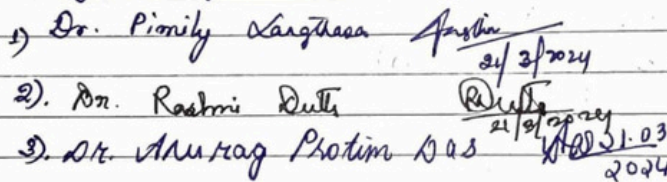 1) Dr. Pimily Langthasa 21/3/2024
2). Dr. Rashmi Dutta RDutta 21/3/2024
3). Dr. Anurag Protim Das 21.03 2024